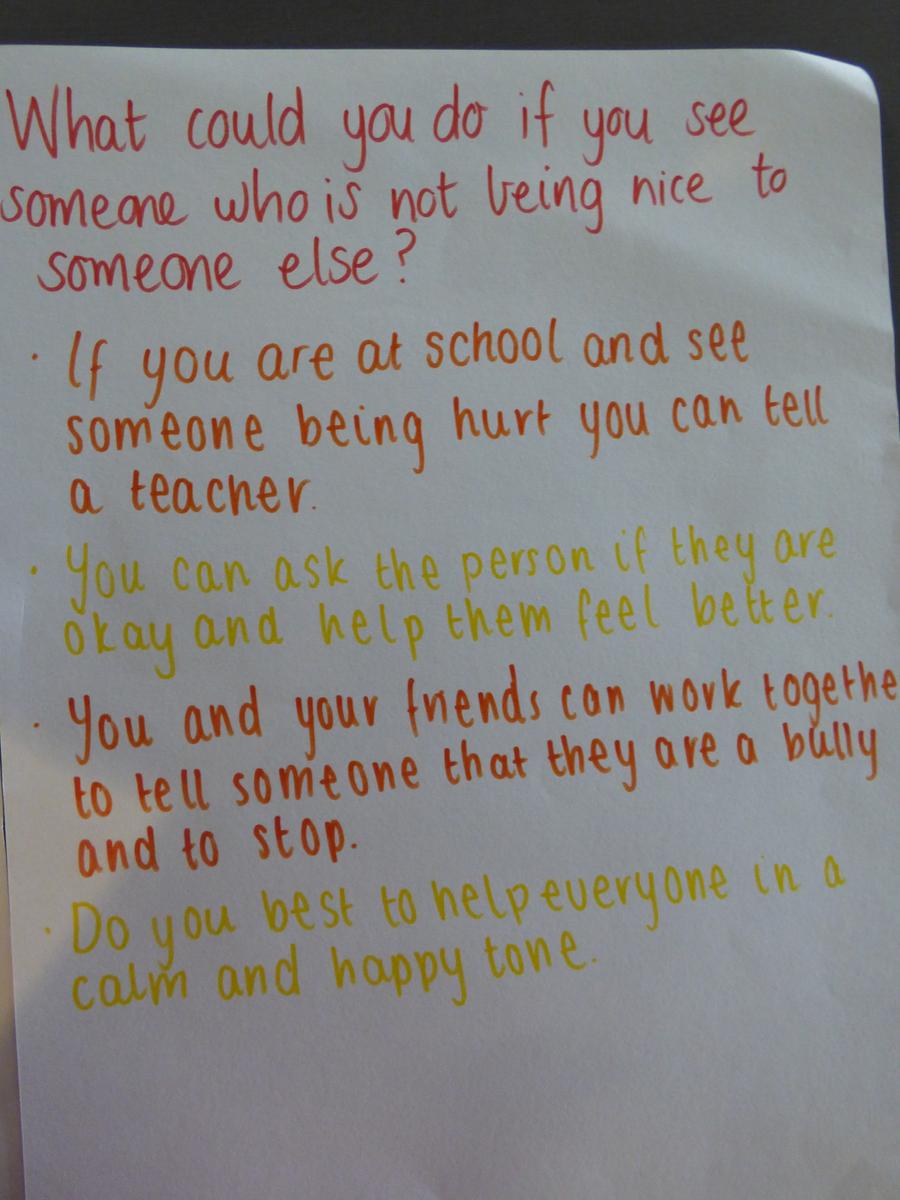 What could you do if you see
someone who is not being nice to
someone else?
· If you are at school and see
someone being hurt you can tell
a teacher.
· You can ask the person if they are
okay and help them feel better.
· You and your friends can work togethe
to tell someone that they are a bully
and to stop.
· Do you best to help everyone in a
calm and happy tone.